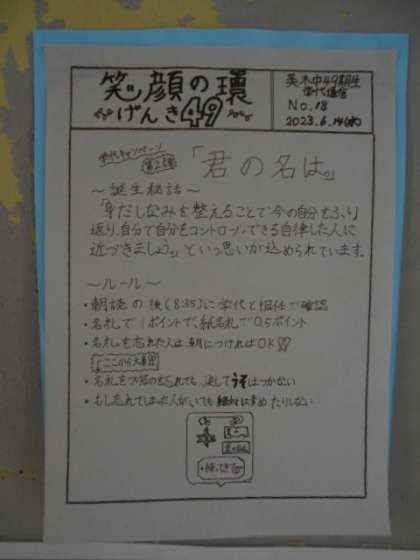 笑顔の環
げんき49
英木中49期生
学代通信
No.18
2023.6.14(水)
学代キャンペーン
第2弾
「君の名は。」
～誕生秘話～
「身だしなみを整えることで今の自分をふり
返り、自分で自分をコントロールできる自律した人に
近づきましょう。」という思いが込められています。
～ルール～
・朝読の後(8:35)に学代と担任で確認
・名札で1ポイントで、紙名札で0.5ポイント
・名札を忘れた人は、朝につければOK!!
ここから大事!!
・名札をつけ忘れても、決してうそはつかない
・もし忘れてしまった人がいても絶対にせめたりしない